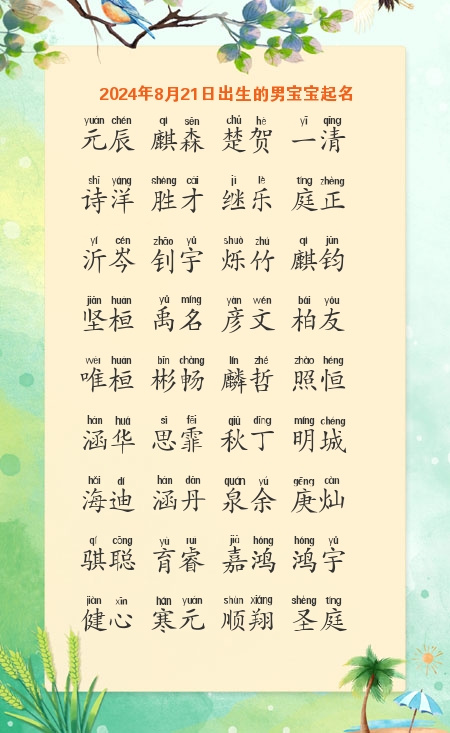 2024年8月21日出生的男宝宝起名
yuán chén qí sēn chǔ hè yī qīng
元辰 麒森 楚贺 一清
shī yáng shèng cái jì lè tíng zhèng
诗洋 胜才 继乐 庭正
yí cén zhāo yǔ shuò zhú qí jūn
沂岑 钊宇 烁竹 麒钧
jiān huán yǔ míng yàn wén bǎi yǒu
坚桓 禹名 彦文 柏友
wéi huán bīn chàng lín zhé zhào héng
唯桓 彬畅 麟哲 照恒
hán huá sī fēi qiū dīng míng chéng
涵华 思霏 秋丁 明城
hǎi dí hán dān quán yú gēng càn
海迪 涵丹 泉余 庚灿
qí cōng yù ruì jiā hóng hóng yǔ
骐聪 育睿 嘉鸿 鸿宇
jiàn xīn hán yuán shùn xiáng shèng tíng
健心 寒元 顺翔 圣庭